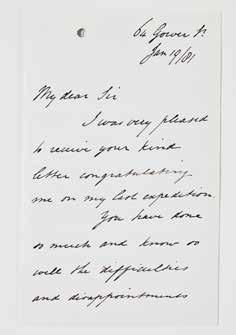 64 Gower St
Jan 19/81
My dear Sir
I was very pleased
to receive your kind
letter congratulating
me on my last expedition.
You have done
so much and know so
well the difficulties
and disappointments